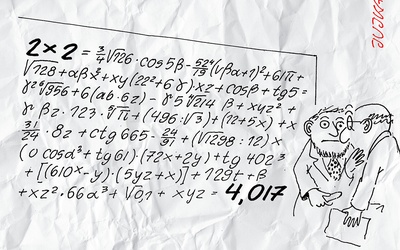 2×2 = 3/4 √126 · cos 5β - 524/19 (√βα+1)² + 61π +
√728 + αβx² + xy (22² + 6γ) · xz + cosβ + tg5 =
γ² ⁶√956 + 6 (ab · 6z) - γ 5 √214 β + xyz² +
γ βz · 723 · ⁶√π + (496 · √3) + (12+5x) + x
31/24 · 8z + ctg 665 - 24/91 + (√1298 : 12) ×
(0 cosα³ + tg 61) · (72x + 2y) + tg 402³
+ [(610ˣ - y) · (5yz + x)] + 129t + β
+ xz² · 66α³ + √01 + xyz = 4,017